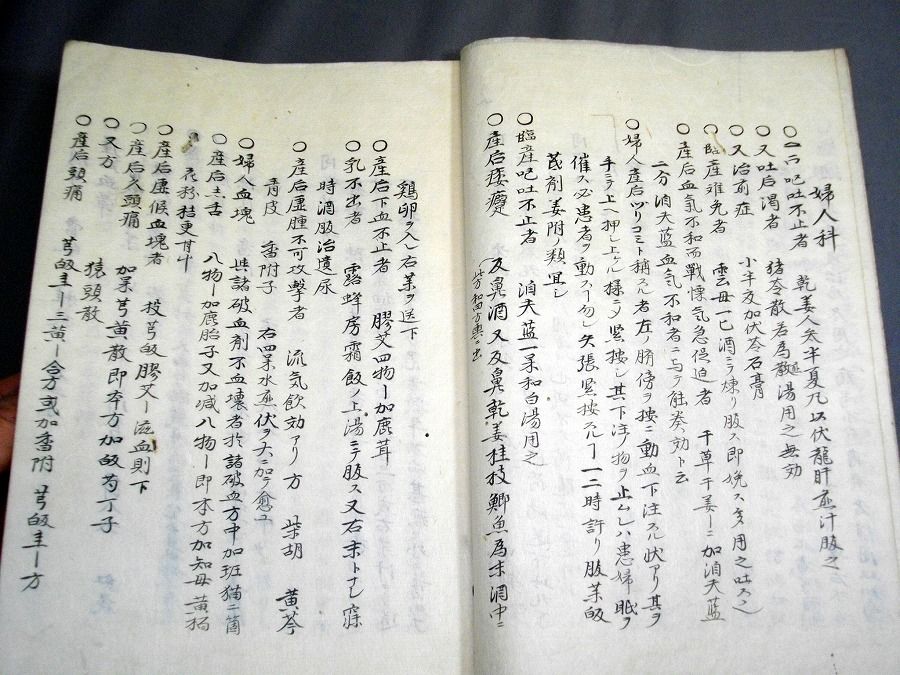 婦人科
○一切呕吐不止者 乾姜人参半夏凡以伏龍肝煎汁服之
○又吐后渇者 猪苓散若為散湯用之無効
○又治前症 小半夏加伏苓石膏
○臨産难免者 雲母一匕酒ニテ煉リ服ス即娩ス多用之吐ス之
○産后血氣不和而戰慄氣急促迫者 干草干姜ーニ加泊夫藍
二分 泊夫藍血氣不和者ニ与テ能奏効ト云
○婦人産后ツリコミト稱スル者左ノ臍傍ヲ按ニ動血下注スル状アリ其ヲ
手ニテ上ヘ押シ上ル様ニメ緊按シ其下注ノ物ヲ止ムレハ患婦眠ヲ
催ス必患者ヲ動スー勿レ矢張緊按スルー一二時許リ服茱皈
芪剤姜附ノ類宜シ
○臨産呕吐不止者 泊夫藍一味和白湯用之
○産后痿躄 反鼻酒 又反鼻乾姜桂枝鯽魚為末酒中ニ
鶏卵ヲ入レ右茱ヲ送下
○産后下血不止者 膠艾四物ー加鹿茸
○乳不出者 露蜂房霜飯ノ上湯ニテ服ス又右末トナシ寐
時酒服治遺尿
○産后虚腫不可攻擊者 流気飲効アリ 方 柴胡 黄芩
青皮 香附子 右四味水煎伏ヲ大ニ加テ愈ユ
○婦人血塊 與諸破血剤不血壊者於諸破血方中加班猫二箇
○産后土舌 八物ー加鹿胎子又加减八物ー即本方加知母黄栢
花粉桔更甘艸
○産后虚候血塊者 投芎皈膠艾ー流血則下
○産后久頭痛 加味芎黄散即本方加皈芍丁子
○又方 猿頭散
○産后頭痛 芎皈圭ー三黄ー合方或加香附 芎皈圭ー方